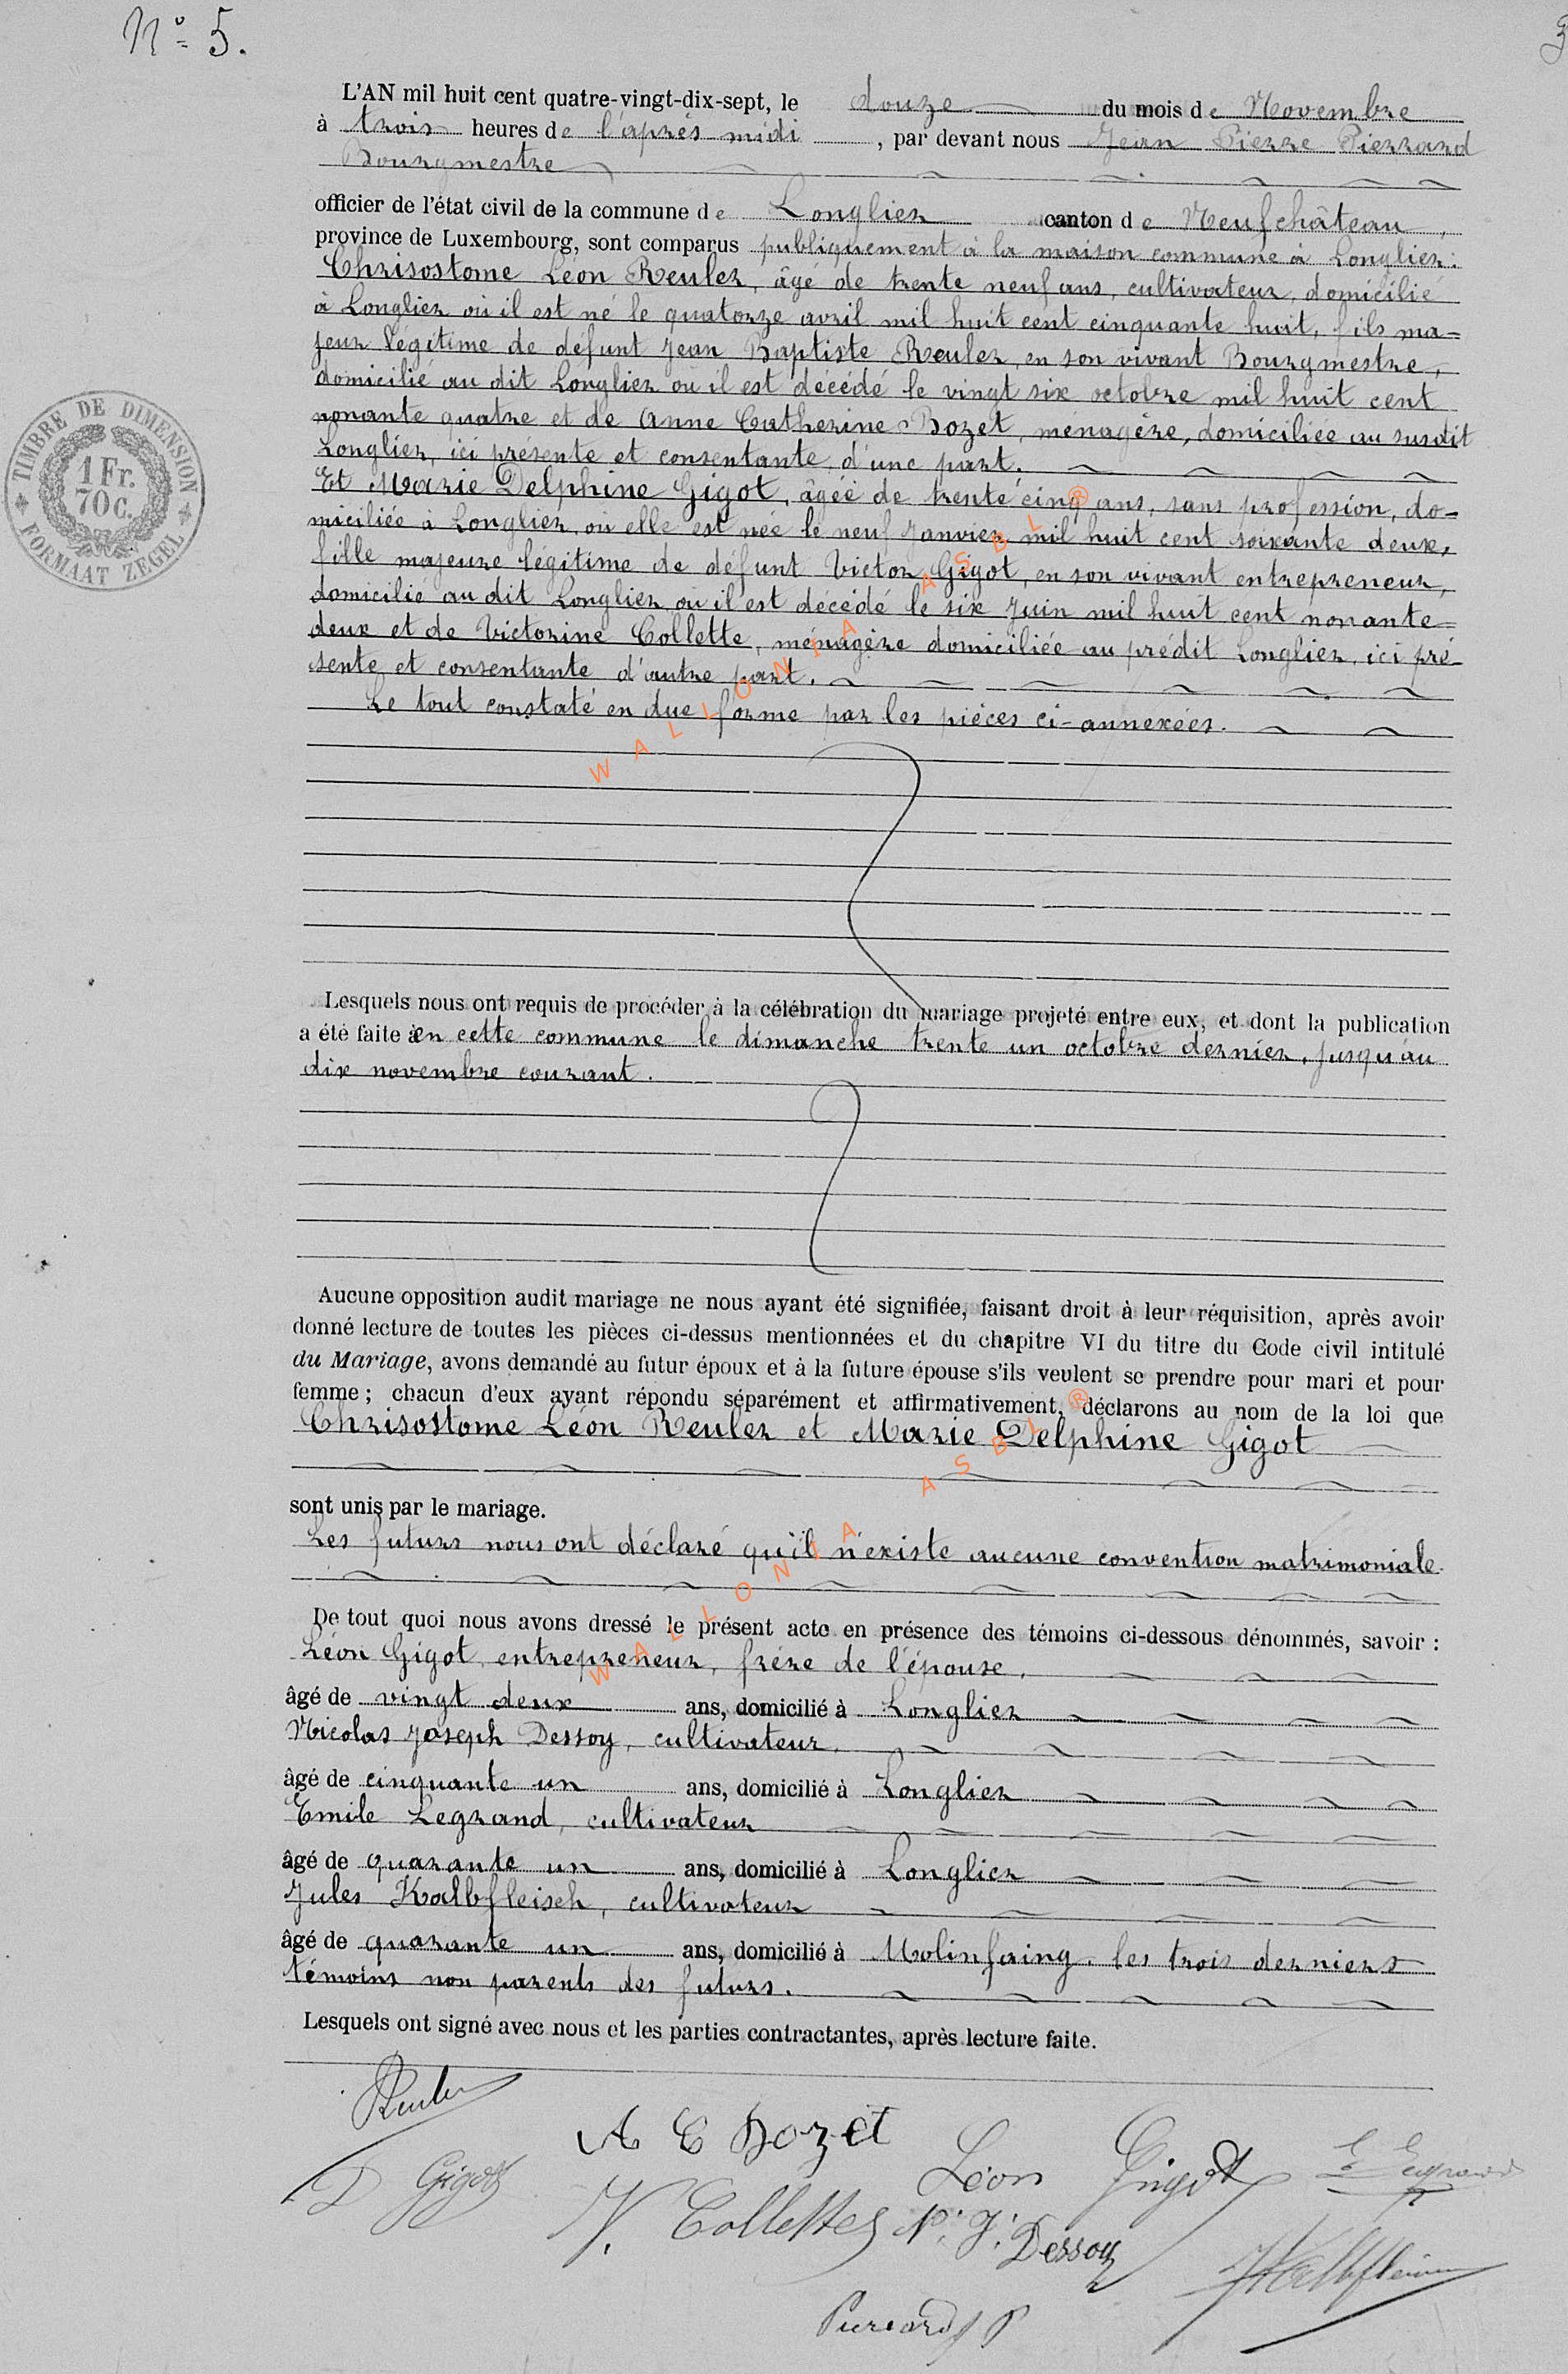 N° 5.
3
L'AN mil huit cent quatre-vingt-dix-sept, le douze du mois de Novembre
à trois heures de l'après-midi, par devant nous Jean Pierre Pierrard
Bourgmestre
officier de l'état civil de la commune de Longlier canton de Neufchâteau,
province de Luxembourg, sont comparus publiquement à la maison commune à Longlier:
Chrisostome Léon Reuler, âgé de trente neuf ans, cultivateur, domicilié
à Longlier où il est né le quatorze avril mil huit cent cinquante huit, fils ma-
jeur légitime de défunt Jean Baptiste Reuler, en son vivant Bourgmestre,
domicilié au dit Longlier où il est décédé le vingt six octobre mil huit cent
nonante quatre et de Anne Catherine Bozet, ménagère, domiciliée au susdit
Longlier, ici présente et consentante, d'une part.
TIMBRE DE DIMENSION
1 Fr.
70 c.
FORMAAT ZEGEL
Et Marie Delphine Gigot, âgée de trente cinq ans, sans profession, do-
miciliée à Longlier, où elle est née le neuf Janvier mil huit cent soixante deux,
fille majeure légitime de défunt Victor Gigot, en son vivant entrepreneur,
domicilié au dit Longlier où il est décédé le six Juin mil huit cent nonante=
deux et de Victorine Collette, ménagère domiciliée au prédit Longlier, ici pré-
sente et consentante d'autre part.
Le tout constaté en due forme par les pièces ci-annexées.
WALLONIA ASBL ®
Lesquels nous ont requis de procéder à la célébration du mariage projeté entre eux, et dont la publication
a été faite à en cette commune le dimanche trente un octobre dernier, jusqu'au
dix novembre courant.
Aucune opposition audit mariage ne nous ayant été signifiée, faisant droit à leur réquisition, après avoir
donné lecture de toutes les pièces ci-dessus mentionnées et du chapitre VI du titre du Code civil intitulé
du Mariage, avons demandé au futur époux et à la future épouse s'ils veulent se prendre pour mari et pour
femme; chacun d'eux ayant répondu séparément et affirmativement, déclarons au nom de la loi que
Chrisostome Léon Reuler et Marie Delphine Gigot
sont unis par le mariage.
Les futurs nous ont déclaré qu'il n'existe aucune convention matrimoniale.
WALLONIA ASBL ®
De tout quoi nous avons dressé le présent acte en présence des témoins ci-dessous dénommés, savoir :
Léon Gigot, entrepreneur, frère de l'épouse.
âgé de vingt deux ans, domicilié à Longlier
Nicolas Joseph Dessoy, cultivateur.
âgé de cinquante un ans, domicilié à Longlier
Emile Legrand, cultivateur
âgé de quarante un ans, domicilié à Longlier
Jules Kalbfleisch, cultivateur
âgé de quarante un ans, domicilié à Molinfaing. les trois derniers
témoins non parents des futurs.
Lesquels ont signé avec nous et les parties contractantes, après lecture faite.
Reuler
A C Bozet
D Gigot
Léon Gigot
E Legrand
V. Collette
N. J. Dessoy
J Kalbfleisch
Pierrard J P